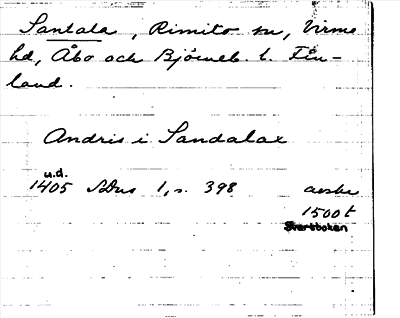 Santala, Rimito sn, Virmo
hd, Åbo och Björneb. l. Fin-
land.
Andris i Sandalax
u.d.
1405 SDns 1, s. 398 avskr
1500 t
Svartboken